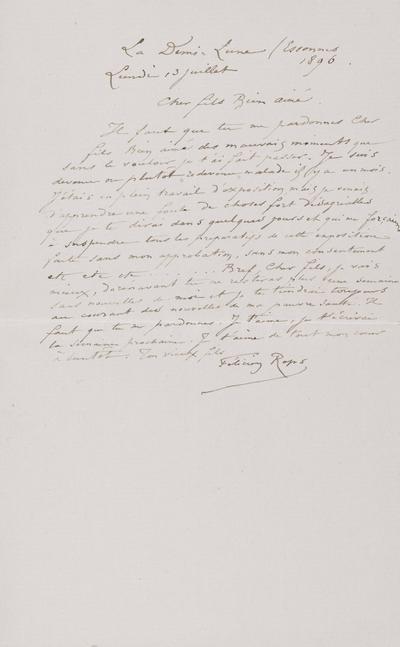 La Demi-Lune / Essonnes
Lundi 13 juillet 1896.
Cher fils Bien aimé.
Il faut que tu me pardonnes Cher
fils Bien aimé des mauvais moments que
sans le vouloir je t'ai fait passer. Je suis
devenu ou plutôt redevenu malade il y a un mois.
J'étais en plein travail d'exposition mais je venais
d'apprendre une foule de choses fort désagréables
que je te dirai dans quelques jours et qui me forçaient
à suspendre tous les préparatifs de cette exposition
faite sans mon approbation, sans mon consentement
etc etc etc ....... Bref, Cher fils, je vais
mieux, dorénavant tu ne resteras plus une semaine
sans nouvelles de moi et je te tiendrai toujours
au courant des nouvelles de ma pauvre santé. Il
faut que tu me pardonnes. Je t'aime, je t'écrirai
la semaine prochaine. Je t'aime de tout mon cœur
à bientôt. Ton vieux fils
Félicien Rops